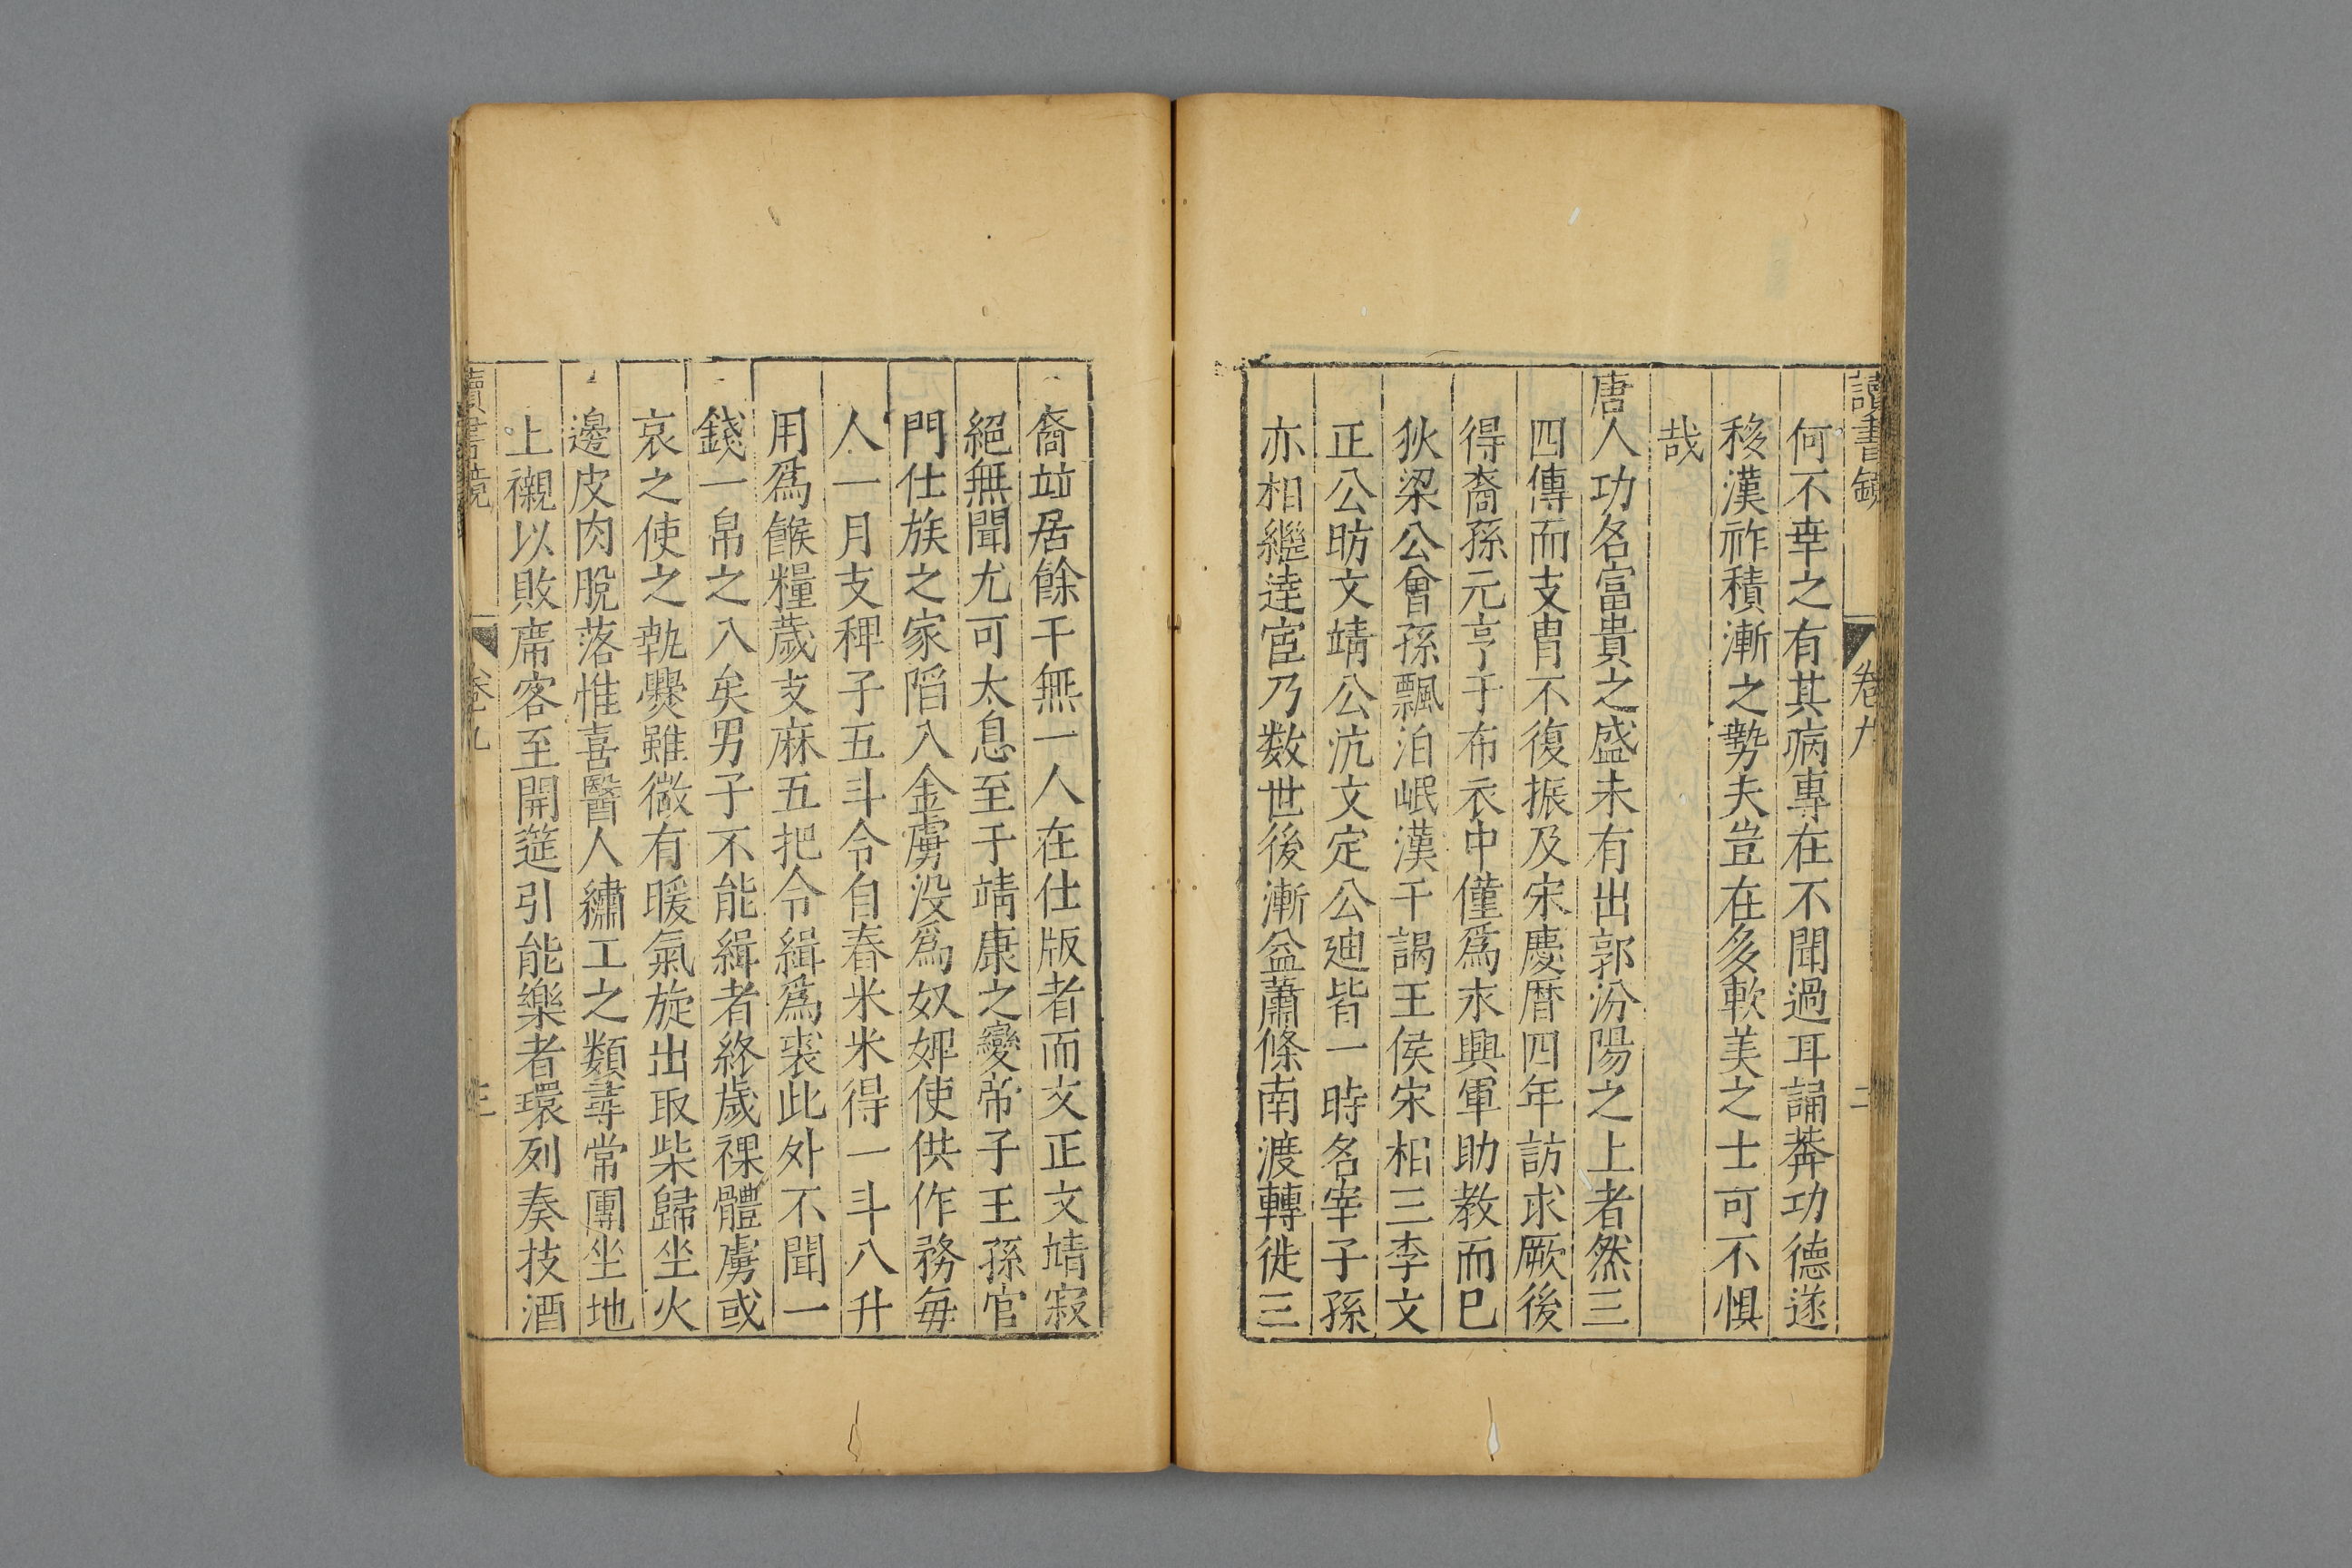 讀書鏡 卷九 二
何不幸之有其病專在不聞過耳誦莽功德遂
移漢祚積漸之勢夫豈在多軟美之士可不懼
哉
唐人功名富貴之盛未有出郭汾陽之上者然三
四傳而支胄不復振及宋慶曆四年訪求厥後
得裔孫元亨于布衣中僅爲永興軍助教而已
狄梁公曾孫飄泊岷漢干謁王侯宋相三李文
正公昉文靖公沆文定公廸皆一時名宰子孫
亦相繼達宦乃数世後漸益蕭條南渡轉徙三
裔竝居餘干無一人在仕版者而文正文靖寂
絕無聞尤可太息至于靖康之變帝子王孫官
門仕族之家陷入金虜没爲奴婢使供作務每
人一月支稗子五斗令自舂米米得一斗八升
用爲餱糧歲支麻五把令緝爲裘此外不聞一
錢一帛之入矣男子不能緝者終歲裸體虜或
哀之使之執爨雖微有暖氣旋出取柴歸坐火
邊皮肉脫落惟喜醫人繡工之類尋常團坐地
上襯以敗席客至開筵引能樂者環列奏技酒
讀書鏡 卷九 三